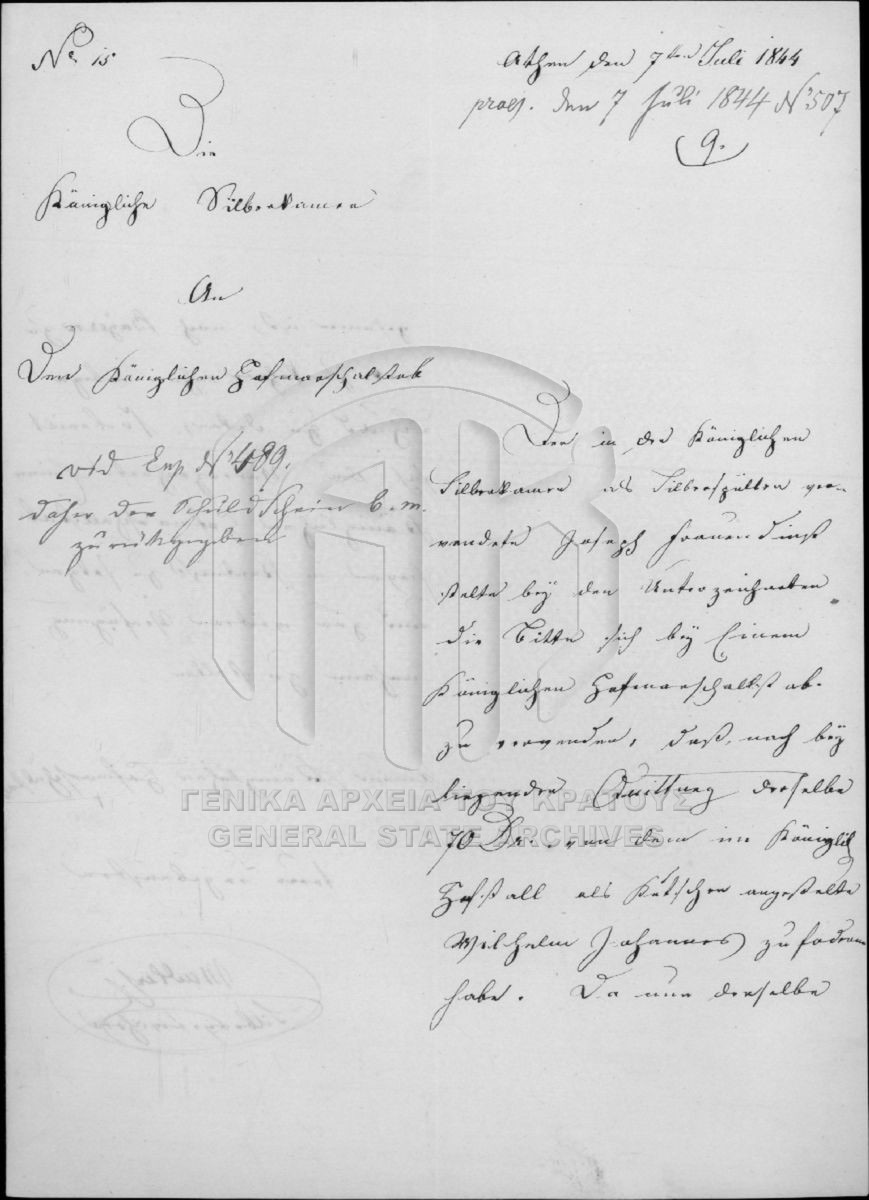 No 15
Athen den 7ten Juli 1844
praes. den 7 Juli 1844 No 507
9.
Die
Königliche Silberkamer
An
Den Königlichen Hofmarschalstab
vid Exp No 489.
daher der Schuld Schein b. m.
zurükgegeben
Der in der Königlichen
Silberkamer als Silberspüller ver-
wendete Joseph Frauendinst
stelte bey den Unterzeichneten
die Bitte sich bey Einem
Königlichen Hofmarschallst ab.
zu verwenden, daß, nach bey
liegender Quittung derselbe
70 Dr. von dem im Königlich
Hofstall als Kutscher angestelte
Wilhelm Johannes zu fodern
habe. Da nun derselbe
ΓΕΝΙΚΑ ΑΡΧΕΙΑ ΤΟΥ ΚΡΑΤΟΥΣ
GENERAL STATE ARCHIVES